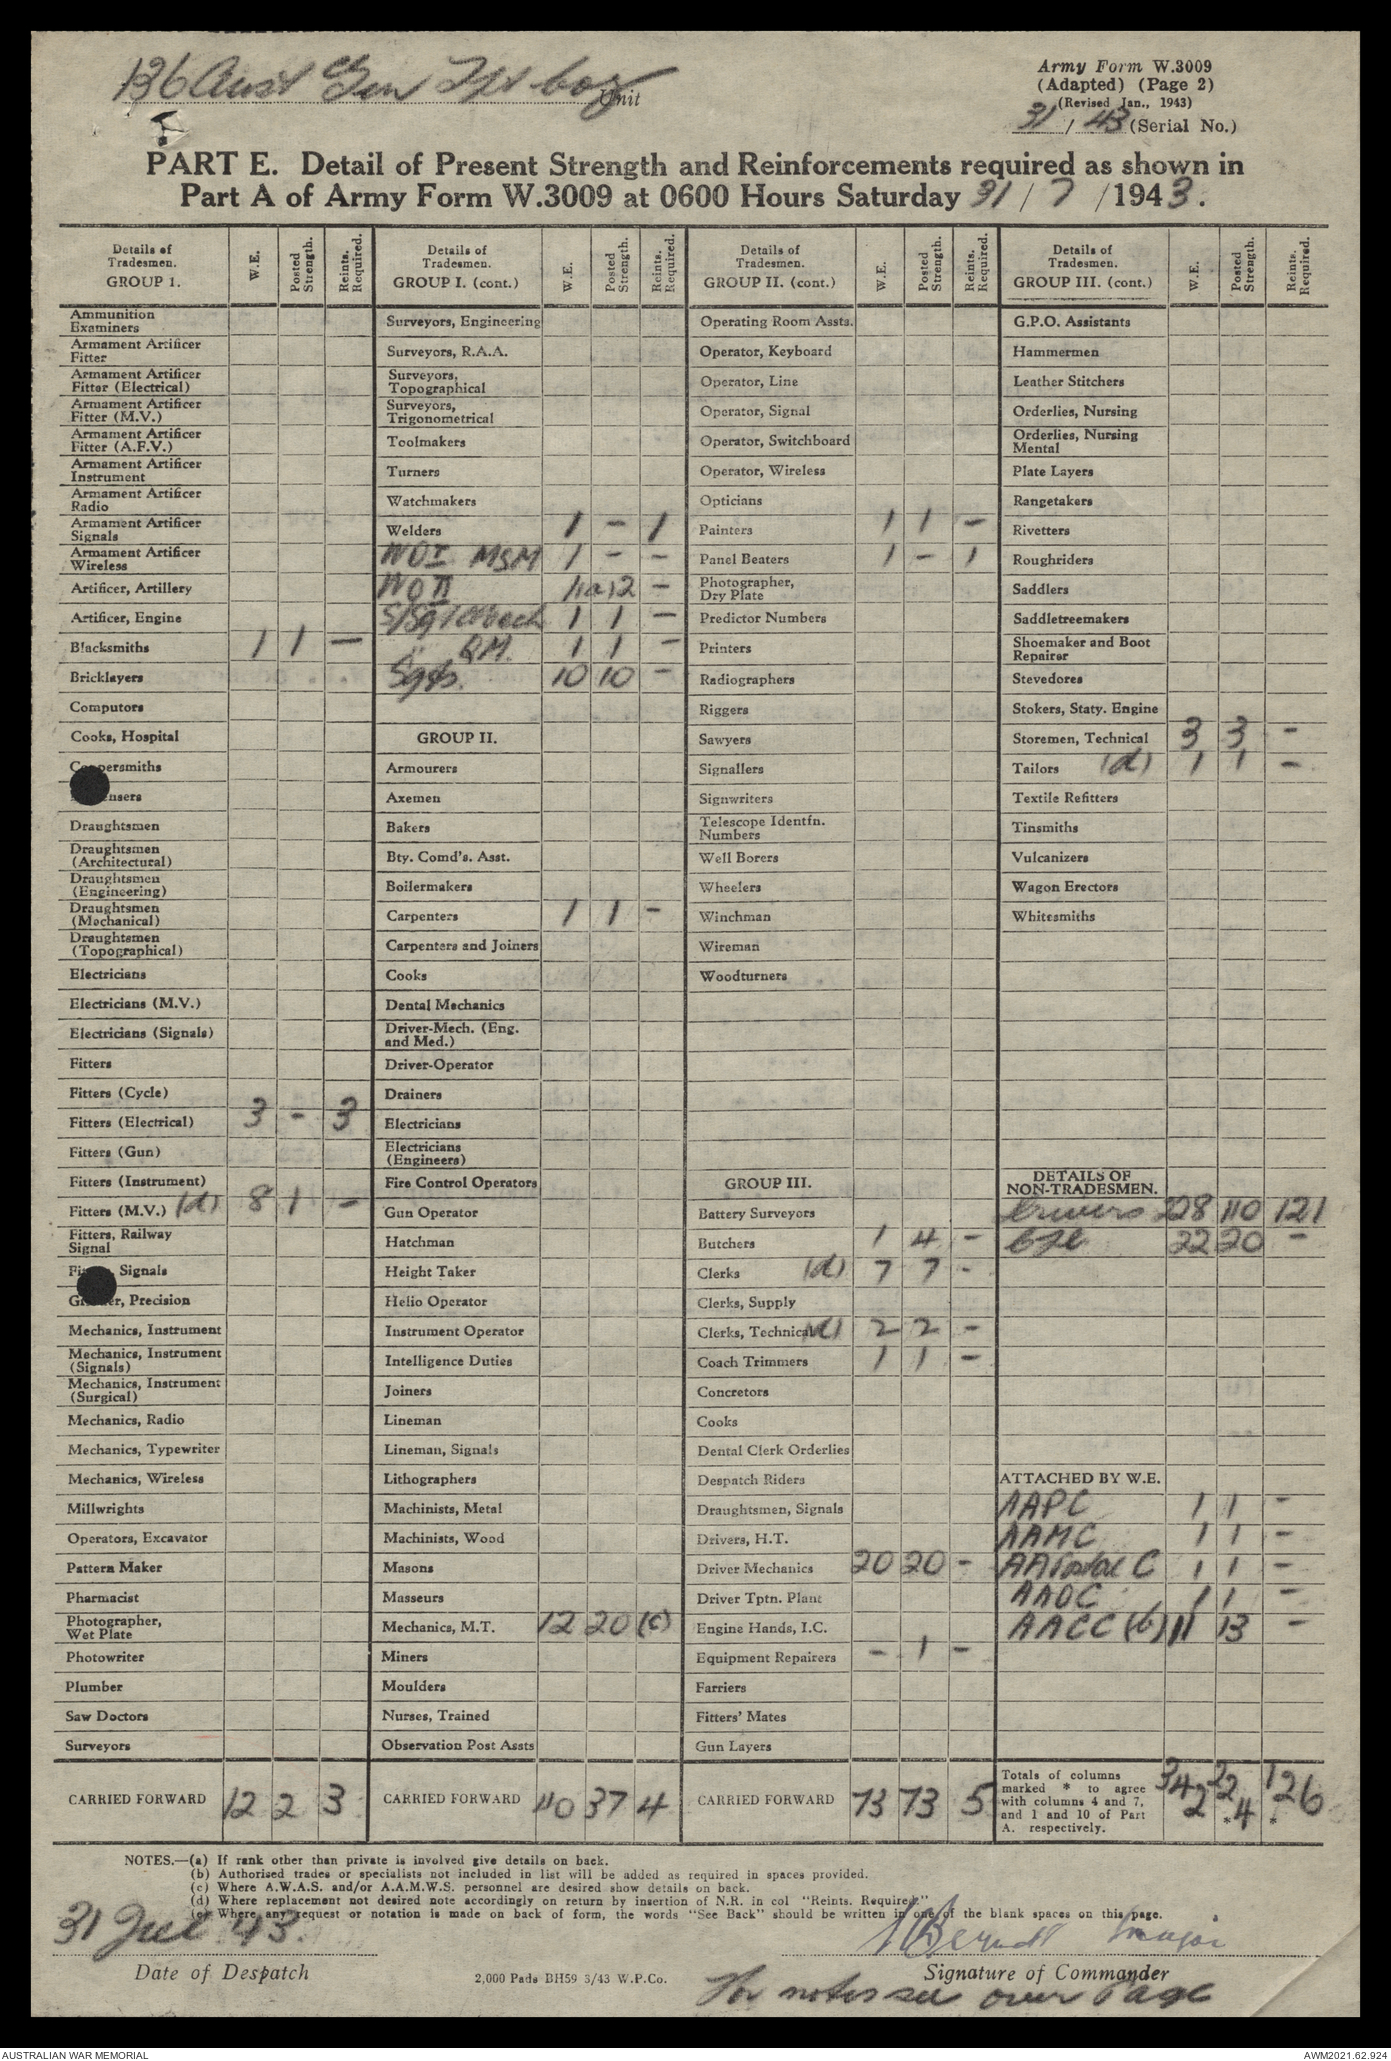 136 Aust Gen Tpt Coy
Unit
Army Form W.3009
(Adapted) (Page 2)
(Revised Jan., 1943)
31 / 43 (Serial No.)
PART E. Detail of Present Strength and Reinforcements required as shown in
Part A of Army Form W.3009 at 0600 Hours Saturday 31 / 7 /1943.
Details of Tradesmen. GROUP 1. W.E. Posted Strength. Reints. Required.
Ammunition Examiners
Armament Artificer Fitter
Armament Artificer Fitter (Electrical)
Armament Artificer Fitter (M.V.)
Armament Artificer Fitter (A.F.V.)
Armament Artificer Instrument
Armament Artificer Radio
Armament Artificer Signals
Armament Artificer Wireless
Artificer, Artillery
Artificer, Engine
Blacksmiths 1 1 —
Bricklayers
Computors
Cooks, Hospital
Coppersmiths
Draughtsmen
Draughtsmen (Architectural)
Draughtsmen (Engineering)
Draughtsmen (Mechanical)
Draughtsmen (Topographical)
Electricians
Electricians (M.V.)
Electricians (Signals)
Fitters
Fitters (Cycle)
Fitters (Electrical) 3 - 3
Fitters (Gun)
Fitters (Instrument)
Fitters (M.V.) (d) 8 1 -
Fitters, Railway Signal
Signals
Precision
Mechanics, Instrument
Mechanics, Instrument (Signals)
Mechanics, Instrument (Surgical)
Mechanics, Radio
Mechanics, Typewriter
Mechanics, Wireless
Millwrights
Operators, Excavator
Pattern Maker
Pharmacist
Photographer, Wet Plate
Photowriter
Plumber
Saw Doctors
Surveyors
CARRIED FORWARD 12 2 3
Details of Tradesmen. GROUP I. (cont.) W.E. Posted Strength. Reints. Required.
Surveyors, Engineering
Surveyors, R.A.A.
Surveyors, Topographical
Surveyors, Trigonometrical
Toolmakers
Turners
Watchmakers
Welders 1 - 1
WOI MSM 1 - -
WOII 1 (a) 2 -
S/Sgt Mech 1 1 -
" QM. 1 1 -
Sgts. 10 10 -
GROUP II.
Armourers
Axemen
Bakers
Bty. Comd's. Asst.
Boilermakers
Carpenters 1 1 -
Carpenters and Joiners
Cooks
Dental Mechanics
Driver-Mech. (Eng. and Med.)
Driver-Operator
Drainers
Electricians
Electricians (Engineers)
Fire Control Operators
Gun Operator
Hatchman
Height Taker
Helio Operator
Instrument Operator
Intelligence Duties
Joiners
Lineman
Lineman, Signals
Lithographers
Machinists, Metal
Machinists, Wood
Masons
Masseurs
Mechanics, M.T. 12 20 (c)
Miners
Moulders
Nurses, Trained
Observation Post Assts
CARRIED FORWARD 40 37 4
Details of Tradesmen. GROUP II. (cont.) W.E. Posted Strength. Reints. Required.
Operating Room Assts.
Operator, Keyboard
Operator, Line
Operator, Signal
Operator, Switchboard
Operator, Wireless
Opticians
Painters 1 1 -
Panel Beaters 1 - 1
Photographer, Dry Plate
Predictor Numbers
Printers
Radiographers
Riggers
Sawyers
Signallers
Signwriters
Telescope Identfn. Numbers
Well Borers
Wheelers
Winchman
Wireman
Woodturners
GROUP III.
Battery Surveyors
Butchers 1 4 -
Clerks (d) 7 7 -
Clerks, Supply
Clerks, Technical (d) 2 2 -
Coach Trimmers 1 1 -
Concretors
Cooks
Dental Clerk Orderlies
Despatch Riders
Draughtsmen, Signals
Drivers, H.T.
Driver Mechanics 20 20 -
Driver Tptn. Plant
Engine Hands, I.C.
Equipment Repairers - 1 -
Farriers
Fitters' Mates
Gun Layers
CARRIED FORWARD 73 73 5
Details of Tradesmen. GROUP III. (cont.) W.E. Posted Strength. Reints. Required.
G.P.O. Assistants
Hammermen
Leather Stitchers
Orderlies, Nursing
Orderlies, Nursing Mental
Plate Layers
Rangetakers
Rivetters
Roughriders
Saddlers
Saddletreemakers
Shoemaker and Boot Repairer
Stevedores
Stokers, Staty. Engine
Storemen, Technical 3 3 -
Tailors (d) 1 1 -
Textile Refitters
Tinsmiths
Vulcanizers
Wagon Erectors
Whitesmiths
DETAILS OF NON-TRADESMEN.
Drivers 228 110 121
22 20 -
ATTACHED BY W.E.
AAPC 1 1 -
AAMC 1 1 -
AAPostal C 1 1 -
AAOC 1 1 -
AACC (b) 11 13 -
Totals of columns marked * to agree with columns 4 and 7, and 1 and 10 of Part A. respectively. 342 224 * 126 *
NOTES.—(a) If rank other than private is involved give details on back.
(b) Authorised trades or specialists not included in list will be added as required in spaces provided.
(c) Where A.W.A.S. and/or A.A.M.W.S. personnel are desired show details on back.
(d) Where replacement not desired note accordingly on return by insertion of N.R. in col "Reints. Required."
(e) Where any request or notation is made on back of form, the words "See Back" should be written in one of the blank spaces on this page.
31 Jul 43.
Major
Date of Despatch
2,000 Pads BH59 3/43 W.P.Co.
Signature of Commander
For notes see over Page
AUSTRALIAN WAR MEMORIAL
AWM2021.62.924